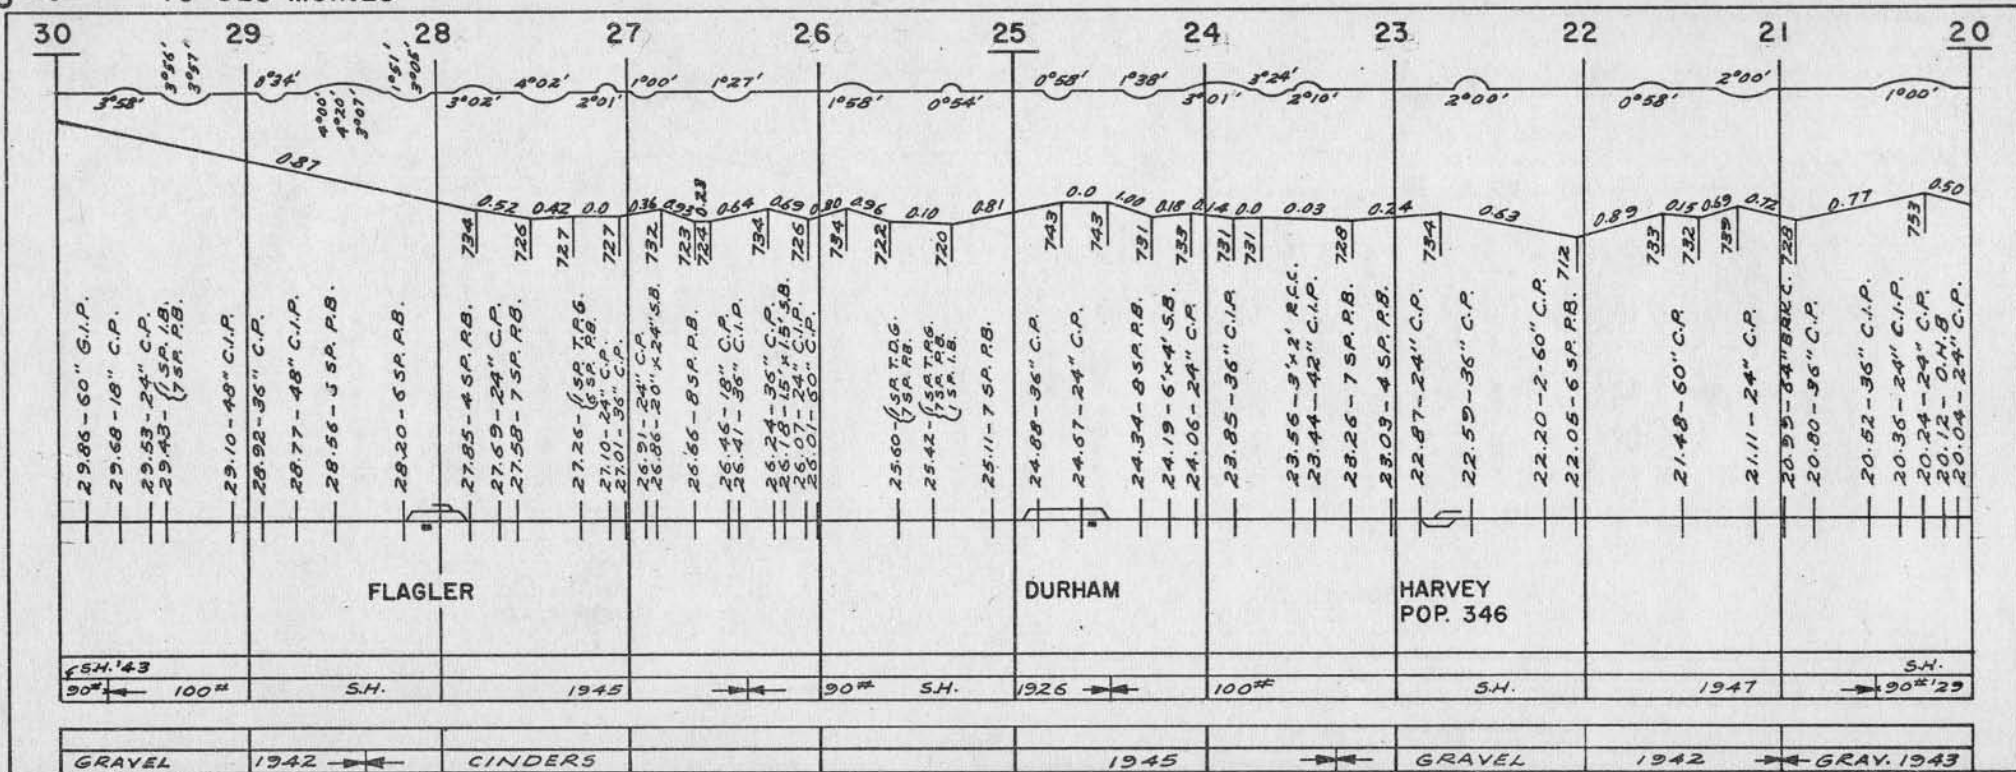 30 29 28 27 26 25 24 23 22 21 20
3°58' 3°56' 3°57' 8°34' 4°00' 4°20' 3°07' 1°51' 3°05' 3°02' 4°02' 2°01' 1°00' 1°27' 1°58' 0°54' 0°58' 1°38' 3°01' 3°24' 2°10' 2°00' 0°58' 2°00' 1°00'
0.87 0.52 0.42 0.0 .36 0.93 0.23 0.64 0.69 0.80 0.96 0.10 0.81 0.0 1.00 0.18 0.14 0.0 0.03 0.24 0.63 0.89 0.15 0.69 0.72 0.77 0.50
734 726 727 727 732 723 724 734 726 734 722 720 743 743 731 733 731 731 728 734 712 733 732 739 728 753
29.86-60" G.I.P.
29.68-18" C.P.
29.53-24" C.P.
29.43-(1 SP. I.B.
(7 SP. P.B.
29.10-48" C.I.P.
28.92-36" C.P.
28.77-48" C.I.P.
28.56-5 SP. P.B.
28.20-6 SP. P.B.
27.85-4 SP. P.B.
27.69-24" C.P.
27.58-7 SP. P.B.
27.26-(1 SP. T.P.G.
(6 SP. P.B.
27.10-24" C.P.
27.01-36" C.P.
26.91-24" C.P.
26.86-20" x 24" S.B.
26.66-8 SP. P.B.
26.46-18" C.P.
26.41-36" C.I.P.
26.24-36" C.P.
26.18-1.5' x 1.5' S.B.
26.07-24" C.I.P.
26.01-60" C.P.
25.60-(1 SP. T.D.G.
(7 SP. P.B.
25.42-(1 SP. T.P.G.
(7 SP. P.B.
(7 SP. I.B.
25.11-7 SP. P.B.
24.88-36" C.P.
24.67-24" C.P.
24.34-8 SP. P.B.
24.19-6'x4' S.B.
24.06-24" C.P.
23.85-36" C.I.P.
23.56-3'x2' R.C.C.
23.44-42" C.I.P.
23.26-7 SP. P.B.
23.03-4 SP. P.B.
22.87-24" C.P.
22.59-36" C.P.
22.20-2-60" C.P.
22.05-6 SP. P.B.
21.48-60" C.P.
21.11-24" C.P.
20.99-84" BRK.C.
20.80-36" C.P.
20.52-36" C.I.P.
20.36-24" C.I.P.
20.24-24" C.P.
20.12- O.H.B
20.04-24" C.P.
FLAGLER
DURHAM
HARVEY
POP. 346
S.H.'43 S.H.
90# 100# S.H. 1945 90# S.H. 1926 100# S.H. 1947 90#'29
GRAVEL 1942 CINDERS 1945 GRAVEL 1942 GRAV. 1943